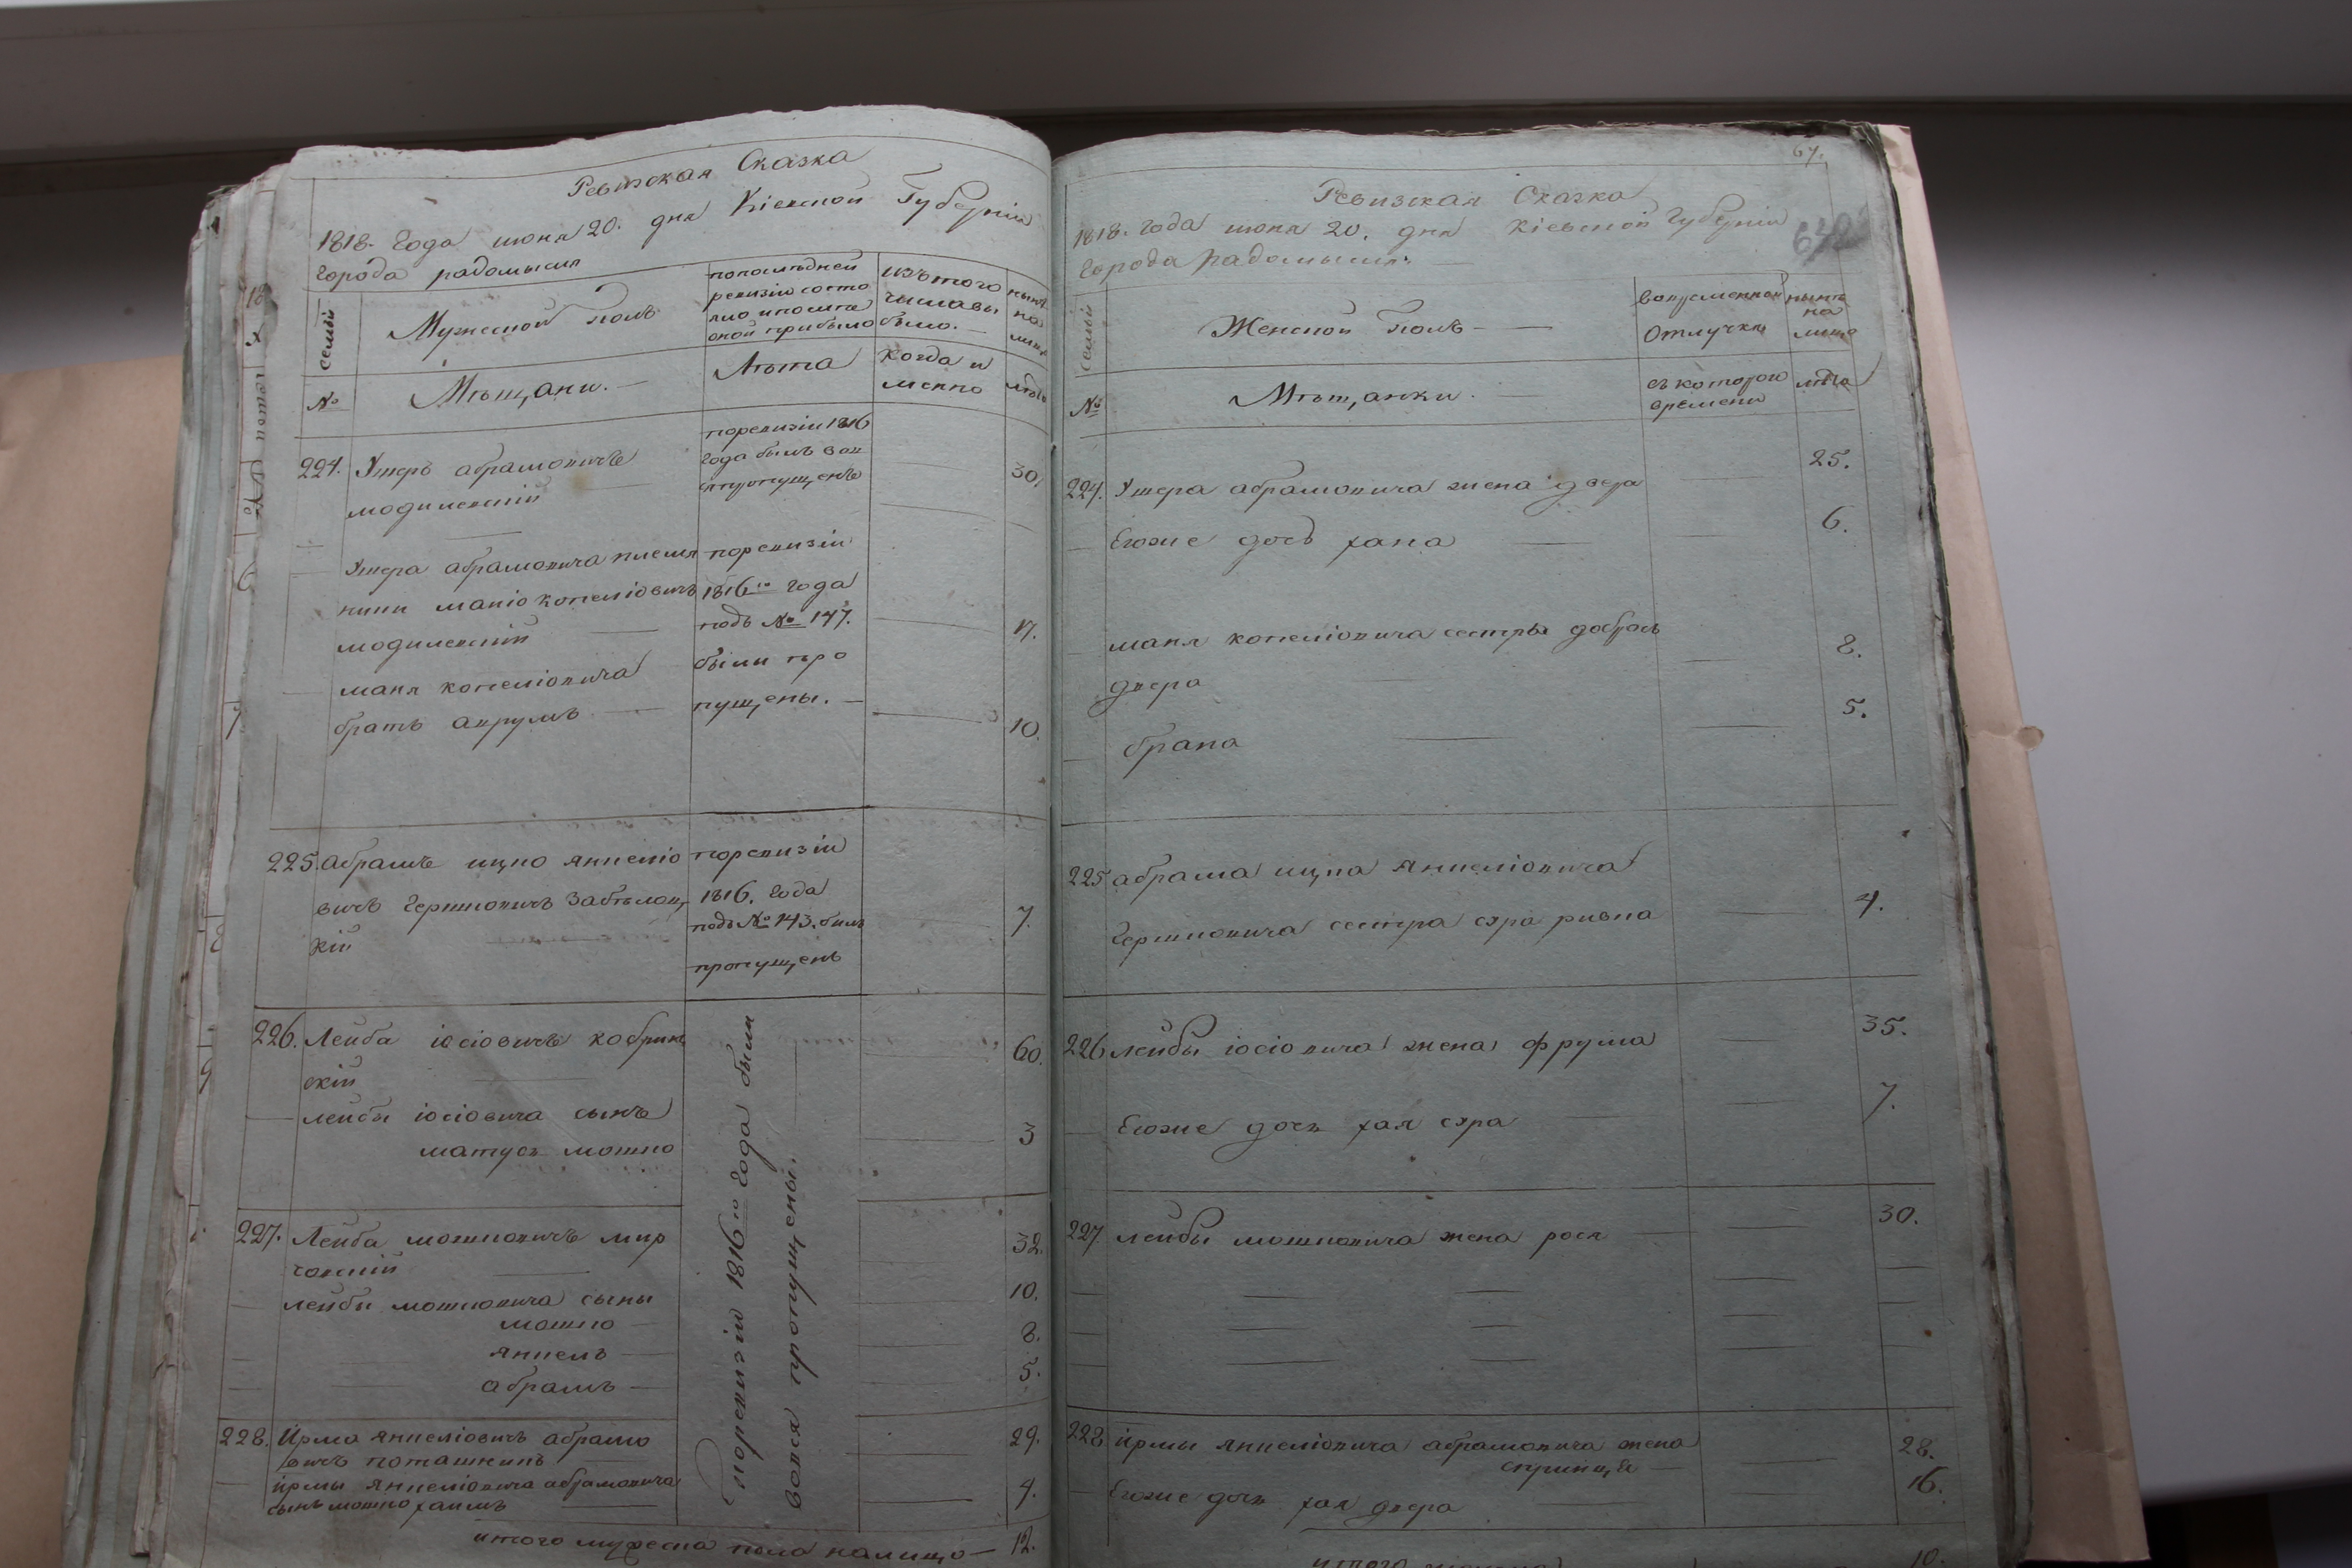 Ревизская Сказка
1818. Года июня 20. дня Кіевской Губерніи
города радомысля
семьи
Мужеской полъ
попослѣдней ревизіи состо яло и послѣ оной прибыло
изътого числа вы было.
нынѣ на лицо
№
Мѣщани.
Лѣта
когда и менно
лѣта
224. Умеръ абрамовичъ
модилевскій
поревизіи 1816
года былъ вов
пропущенъ
30.
Умера абрамовича племя
ники маніо копеліовичъ
модилевскій
поревизіи
1816го года
подъ № 147.
17.
маня копеліовича
брать аврумъ
были про
пущены.
10.
225. абрамъ ицко янкеліо
вичъ Гершковичъ Забѣлоц
кій
поревизіи
1816. года
подъ № 143. былъ
пропущенъ
7.
226. Лейба іосіовичъ кобрин
скій
60.
лейбы іосіовича сынъ
матусъ мошко
3
227. Лейба мошковичъ мир
гонскій
32.
лейбы мошковича сыны
мошко
10.
янкель
8.
абрамъ
5.
поревизіи 1816го года были
вовся пропущены.
228. Ирма янкеліовичъ абрамо
вичъ поташникъ
29.
ирмы янкеліовича абрамовича
сынъ мошко хаимъ
4.
итого мужеска пола налицо — 12.
67.
Ревизская Сказка
1818. года июня 20. дня Кіевской Губерніи
города радомысля
семьи
Женской полъ
вовременной отлучкѣ
нынѣ на лицо
№
Мѣщанки.
съ котораго времени
лѣта
224. Умера абрамовича жена двера
25.
Егоже дочь хана
6.
маня копеліовича сестры добрась
двера
8.
брана
5.
225 абрама ицка янкеліовича
Гершковича сестра сяра ривка
4.
226 лейбы іосіовича жена фрума
35.
Егоже дочь хая сяра
7.
227 лейбы мошковича жена рося
30.
228 ирмы янкеліовича абрамовича жена
спринца
28.
Егоже дочь хая двера
16.
10.